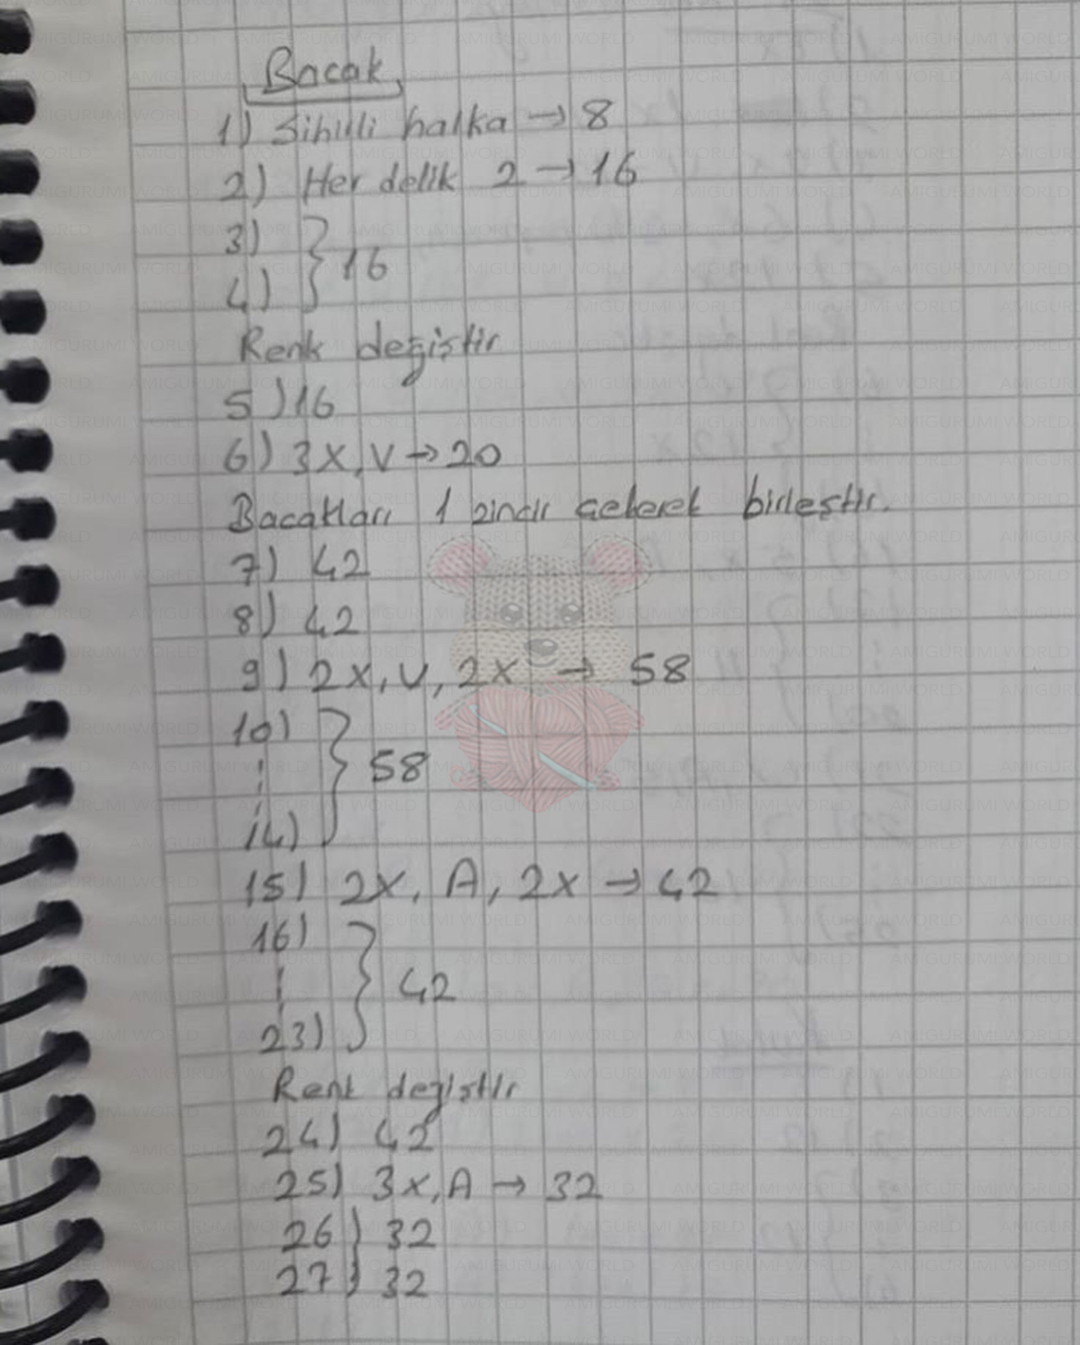 Bacak
1) Sihirli halka → 8
2) Her delik 2 → 16
3)
4) } 16
Renk değiştir
5) 16
6) 3X, V → 20
Bacakları 1 zincir çekerek birleştir.
7) 42
8) 42
9) 2X, V, 2X → 58
10)
⋮ } 58
14)
15) 2X, A, 2X → 42
16)
⋮ } 42
23)
Renk değiştir
24) 42
25) 3X, A → 32
26) 32
27) 32
AMIGURUMI WORLD